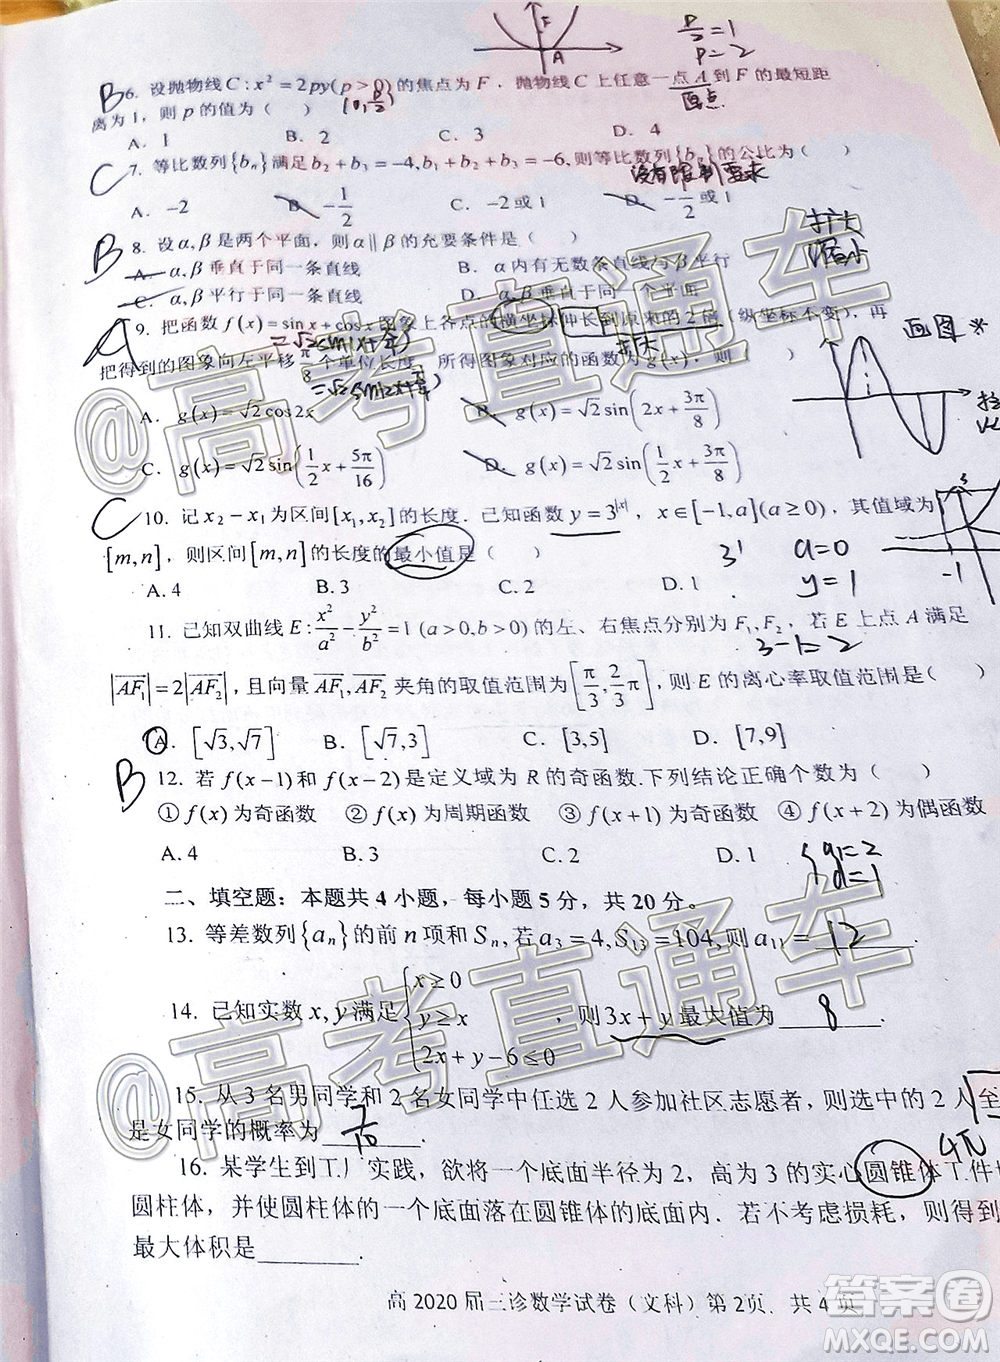 F
A
p/2=1
p=2
B 6. 设抛物线 C: x²=2py(p>0) 的焦点为 F，抛物线 C 上任意一点 A 到 F 的最短距
(0, p/2)
原点
离为 1，则 p 的值为（ ）
A. 1 B. 2 C. 3 D. 4
C 7. 等比数列{bₙ}满足 b₂+b₃=-4, b₁+b₂+b₃=-6, 则等比数列{bₙ}的公比为（ ）
没有限制要求
A. -2 B. -1/2 C. -2或1 D. -1/2或1
B 8. 设 α,β 是两个平面，则 α∥β 的充要条件是（ ）
A. α,β 垂直于同一条直线 B. α 内有无数条直线与 β 平行
C. α,β 平行于同一条直线 D. α,β 垂直于同一个平面
扩大
缩小
A 9. 把函数 f(x)=sin x+cos x 图象上各点的横坐标伸长到原来的 2 倍（纵坐标不变），再
=√2sin(x+π/4)
扩大
画图*
把得到的图象向左平移 π/8 个单位长度，所得图象对应的函数为 g(x)，则（ ）
A. g(x)=√2cos2x B. g(x)=√2sin(2x+3π/8)
C. g(x)=√2sin(1/2 x+5π/16) D. g(x)=√2sin(1/2 x+3π/8)
C 10. 记 x₂-x₁ 为区间[x₁,x₂]的长度. 已知函数 y=3^|x|，x∈[-1,a](a≥0)，其值域为
[m,n]，则区间[m,n]的长度的最小值是（ ）
3¹ a=0
y=1
-1
3
A. 4 B. 3 C. 2 D. 1
11. 已知双曲线 E: x²/a²-y²/b²=1(a>0,b>0) 的左、右焦点分别为 F₁,F₂，若 E 上点 A 满足
3-1=2
|AF₁|=2|AF₂|，且向量 AF₁,AF₂ 夹角的取值范围为[π/3, 2/3 π]，则 E 的离心率取值范围是（ ）
A. [√3,√7] B. [√7,3] C. [3,5] D. [7,9]
B 12. 若 f(x-1) 和 f(x-2) 是定义域为 R 的奇函数. 下列结论正确个数为（ ）
①f(x) 为奇函数 ②f(x) 为周期函数 ③f(x+1) 为奇函数 ④f(x+2) 为偶函数
A. 4 B. 3 C. 2 D. 1
a₁=2
d=1
二、填空题：本题共 4 小题，每小题 5 分，共 20 分。
13. 等差数列{aₙ}的前 n 项和 Sₙ, 若 a₃=4, S₁₃=104, 则 a₁₁= 12
14. 已知实数 x,y 满足 {x≥0 y≥x 2x+y-6≤0，则 3x+y 最大值为 8
15. 从 3 名男同学和 2 名女同学中任选 2 人参加社区志愿者，则选中的 2 人至
是女同学的概率为 7/10
4π
16. 某学生到工厂实践，欲将一个底面半径为 2，高为 3 的实心圆锥体工件
圆柱体，并使圆柱体的一个底面落在圆锥体的底面内. 若不考虑损耗，则得到
最大体积是
高 2020 届三诊数学试卷（文科）第 2 页 共 4 页
@高考直通车
@高考直通车
答案圈
MXQE.COM